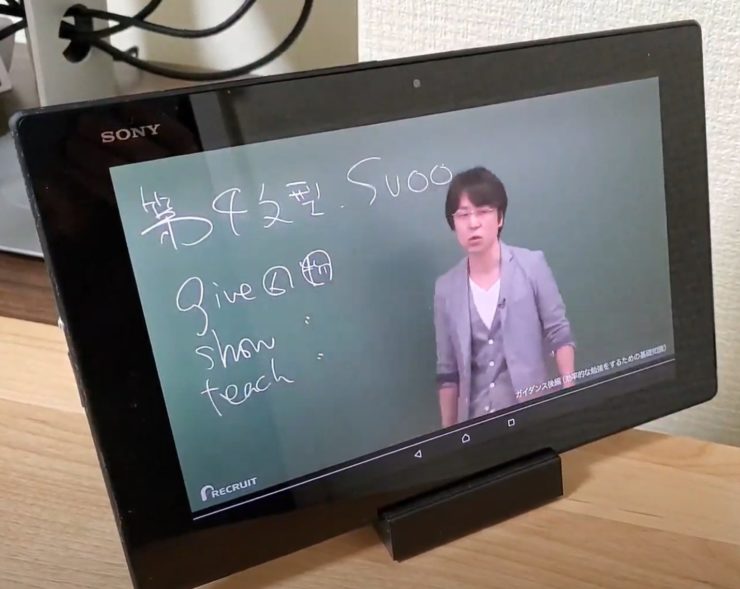 SONY
第4文型. SVOO
give ㋑ ㋰
show 〃
teach 〃
ガイダンス後編（効率的な勉強をするための基礎知識）
RECRUIT